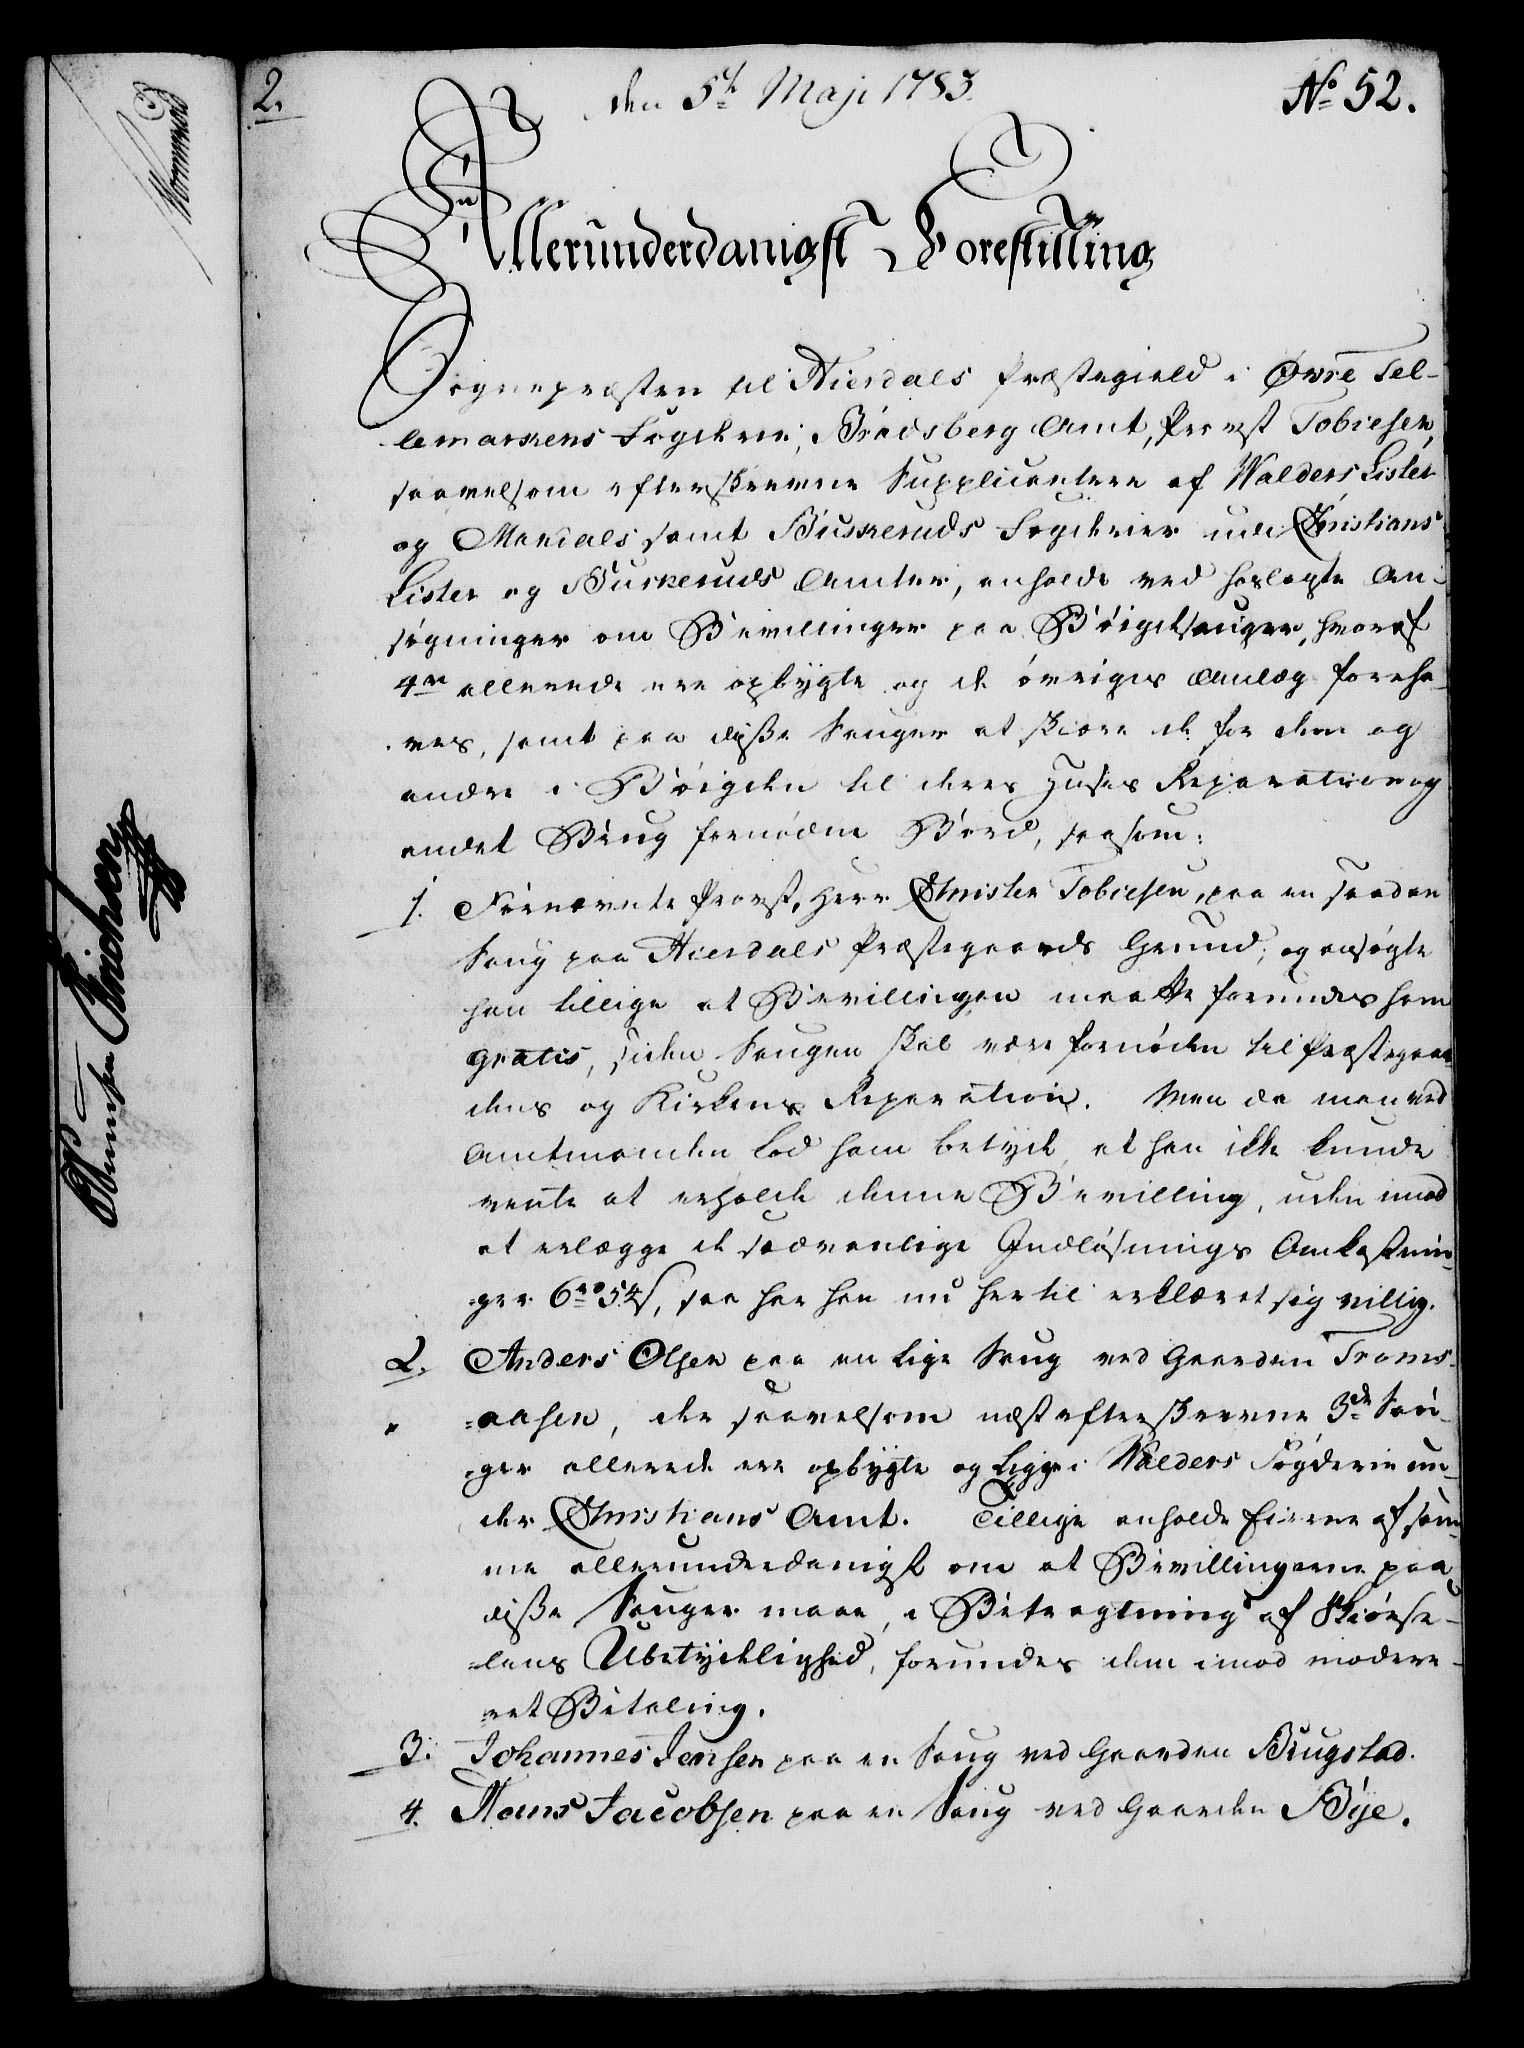 2.
den 5te Maji 1783.
No 52.
Allerunderdanigst Forestilling
Sognepræsten til Hierdals Præstegield i Øvre Tel-
lemarkens Fogderie, Bradsberg Amt, Provst Tobiesen,
saavelsom efterskrevne Supplicantere af Walders Lister
og Mandals samt Buskeruds Fogderier udi Christians
Lister og Buskeruds Amter, anholde ved hoslagte An-
søgninger om Bevillinger paa Bøigdesauger, hvoraf
4re allerede ere opbygte og de øvriges Anlæg foreha-
ves, samt paa disse Sauger at skiære de for dem og
andre i Bøigden til deres Huses Reparation og
andet Brug fornødne Bord, saasom:
1. Førnævnte Provst, Herr Christen Tobiesen, paa en saadan
Saug paa Hierdals Præstegaards Grund; og ansøgte
han tillige at Bevillingen maatte forundes ham
gratis, siden Saugen skal være fornøden til Præstegaar-
dens og Kirkens Reparation. Men da man ved
Amtmanden lod ham betyde, at han ikke kunde
vente at erholde denne Bevilling, uden imod
at erlægge de sædvanlige Indløsnings Omkostnin-
ger 6rd 54s, saa har han nu hertil erklæret sig villig.
2. Anders Olsen paa en lige Saug ved Gaarden Froms-
=aasen, der saavelsom næstefterskrevne 3de Sau-
ger allerede ere opbygte og ligge i Walders Fogderie un-
der Christians Amt. Tillige anholde Eierne af sam-
me allerunderdanigst om at Bevillingerne paa
disse Sauger maae, i Betragtning af Skiørse-
lens Ubetydelighed, forundes dem imod modere-
ret Betaling.
3. Johannes Jensen paa en Saug ved Gaarden Brugstad.
4. Hans Jacobsen paa en Saug ved Gaarden Bye.